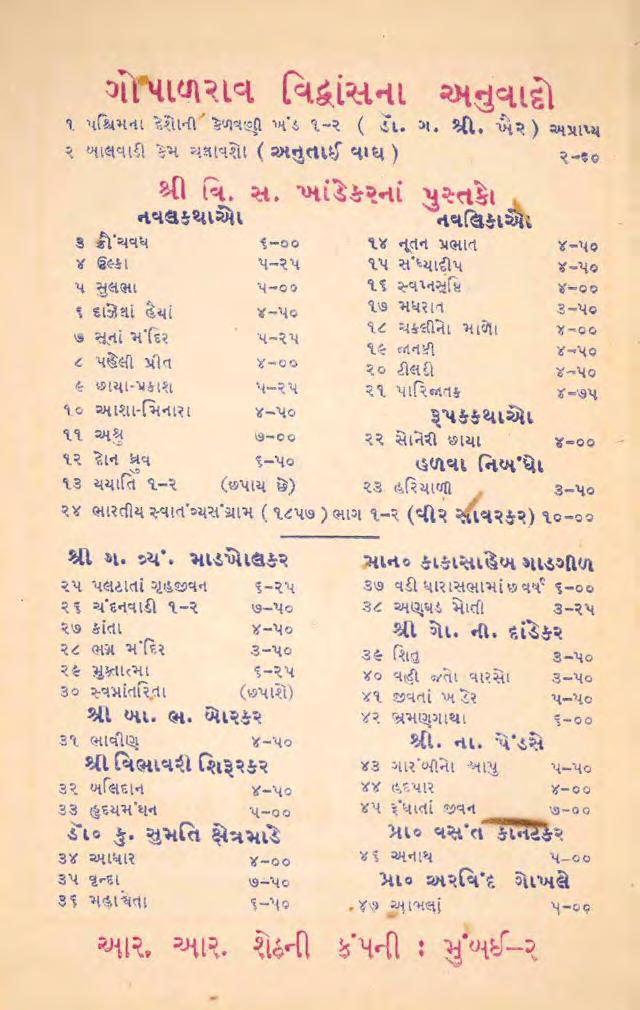 ગોપાળરાવ વિદ્વાંસના અનુવાદો
૧ પશ્ચિમના દેશોની કેળવણી ખંડ ૧-૨ ( ડૉ. ગ. શ્રી. ખૈર ) અપ્રાપ્ય
૨ બાલવાડી કેમ ચલાવશો ( અનુતાઈ વાઘ ) ૨-૬૦
શ્રી વિ. સ. ખાંડેકરનાં પુસ્તકો
નવલકથાઓ
૩ ક્રૌંચવધ ૬-૦૦
૪ ઉલ્કા ૫-૨૫
૫ સુલભા ૫-૦૦
૬ દાઝેલાં હૈયાં ૪-૫૦
૭ સૂનાં મંદિર ૫-૨૫
૮ પહેલી પ્રીત ૪-૦૦
૯ છાયા-પ્રકાશ ૫-૨૫
૧૦ આશા-મિનારા ૪-૫૦
૧૧ અશ્રુ ૭-૦૦
૧૨ દોન ધ્રુવ ૬-૫૦
૧૩ યયાતિ ૧-૨ (છપાય છે)
નવલિકાઓ
૧૪ નૂતન પ્રભાત ૪-૫૦
૧૫ સંધ્યાદીપ ૪-૫૦
૧૬ સ્વપ્નસૃષ્ટિ ૪-૦૦
૧૭ મધરાત ૩-૫૦
૧૮ ચકલીનો માળો ૪-૦૦
૧૯ જાનકી ૪-૫૦
૨૦ ટીલડી ૪-૫૦
૨૧ પારિજાતક ૪-૭૫
રૂપકકથાઓ
૨૨ સોનેરી છાયા ૪-૦૦
હળવા નિબંધો
૨૩ હરિયાળી ૩-૫૦
૨૪ ભારતીય સ્વાતંત્ર્યસંગ્રામ ( ૧૮૫૭ ) ભાગ ૧-૨ (વીર સાવરકર) ૧૦-૦૦
શ્રી ગ. ત્ર્યં. માડખોલકર
૨૫ પલટાતાં ગૃહજીવન ૬-૨૫
૨૬ ચંદનવાડી ૧-૨ ૭-૫૦
૨૭ કાંતા ૪-૫૦
૨૮ ભગ્ન મંદિર ૩-૫૦
૨૯ મુક્તાત્મા ૬-૨૫
૩૦ સ્વપ્નાંતરિતા (છપાશે)
શ્રી બા. ભ. બોરકર
૩૧ ભાવીણ ૪-૫૦
શ્રી વિભાવરી શિરૂરકર
૩૨ બલિદાન ૪-૫૦
૩૩ હૃદયમંથન ૫-૦૦
ડૉ૦ કુ. સુમતિ ક્ષેત્રમાડે
૩૪ આધાર ૪-૦૦
૩૫ વૃન્દા ૭-૫૦
૩૬ મહાશ્વેતા ૬-૫૦
માન૦ કાકાસાહેબ ગાડગીળ
૩૭ વડી ધારાસભામાં છ વર્ષ ૬-૦૦
૩૮ અણઘડ મોતી ૩-૨૫
શ્રી ગો. ની. દાંડેકર
૩૯ શિતુ ૩-૫૦
૪૦ વહી જતો વારસો ૩-૫૦
૪૧ જીવતાં ખંડેર ૫-૫૦
૪૨ ભ્રમણગાથા ૬-૦૦
શ્રી. ના. પેંડસે
૪૩ ગારંબીનો બાપુ ૫-૫૦
૪૪ હદપાર ૪-૦૦
૪૫ રૂંધાતાં જીવન ૭-૦૦
પ્રા૦ વસંત કાનટકર
૪૬ અનાથ ૫-૦૦
પ્રા૦ અરવિંદ ગોખલે
૪૭ આભલાં ૫-૦૦
આર. આર. શેઠની કંપની : મુંબઈ-૨